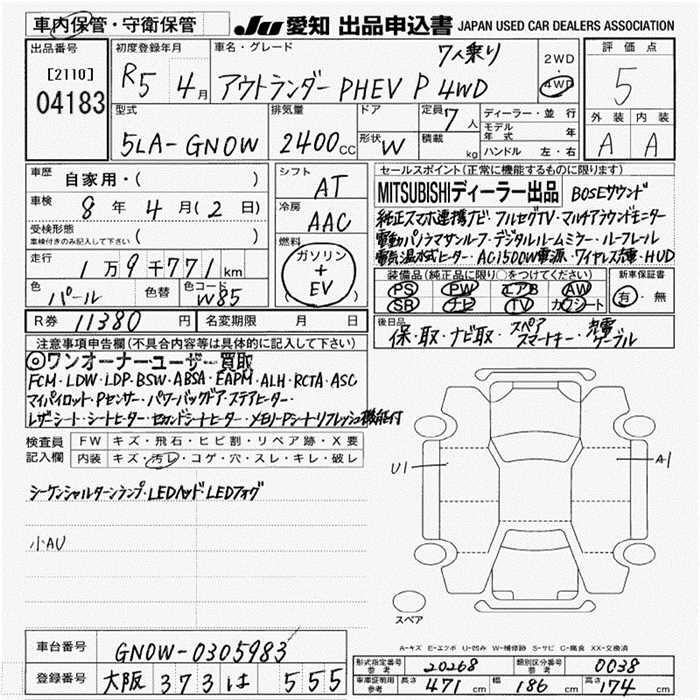 車内保管・守衛保管
JU 愛知 出品申込書 JAPAN USED CAR DEALERS ASSOCIATION
出品番号
[2110]
04183
初度登録年月
R5 4月
車名・グレード
7人乗り
アウトランダー PHEV P 4WD
2WD
4WD
評価点
5
外装 内装
A A
型式
5LA-GN0W
排気量
2400cc
ドア
形状 W
定員 7人
積載 kg
ディーラー・並行
モデル年式 年
ハンドル 左・右
車歴 自家用・( )
車検 8年 4月 (2日)
受検形態
車検付きのみ記入して下さい ( )
走行 1万9千771km
色 パール
色替
色コード W85
シフト AT
冷房 AAC
燃料
ガソリン
+
EV
R券 11380円
名変期限 月 日
セールスポイント(正常に機能するものに限ります)
MITSUBISHIディーラー出品 BOSEサウンド
純正スマホ連携ナビ・フルセグTV・マルチアラウンドモニター
電動パノラマサンルーフ・デジタルルームミラー・ルーフレール
電気温水式ヒーター・AC1500W電源・ワイヤレス充電・HUD
装備品(純正品に限り○をつけてください)
PS PW エアB AW
SR ナビ TV カワシート
新車保証書
有・無
後日品
保・取・ナビ取・スペアスマートキー・充電ケーブル
注意事項申告欄(不具合内容等は具体的に記入して下さい)
◎ワンオーナー・ユーザー買取
FCM・LDW・LDP・BSW・ABSA・EAPM・ALH・RCTA・ASC
マイパイロット・Pセンサー・パワーバックドア・ステアヒーター・
レザーシート・シートヒーター・セカンドシートヒーター・メモリーPシート・リフレッシュ機能付
検査員記入欄
FW キズ・飛石・ヒビ割・リペア跡・X要
内装 キズ・汚レ・コゲ・穴・スレ・キレ・破レ
シーケンシャルターンランプ・LEDヘッド LEDフォグ
小AU
U1
A1
スペア
A-キズ E-エクボ U-凹み W-補修跡 S-サビ C-腐食 XX-交換済
車台番号 GN0W-0305983
登録番号 大阪 373 は 555
形式指定番号 参考 20268
類別区分番号 参考 0038
車庫証明用 参考 長さ 471cm 幅 186cm 高さ 174cm